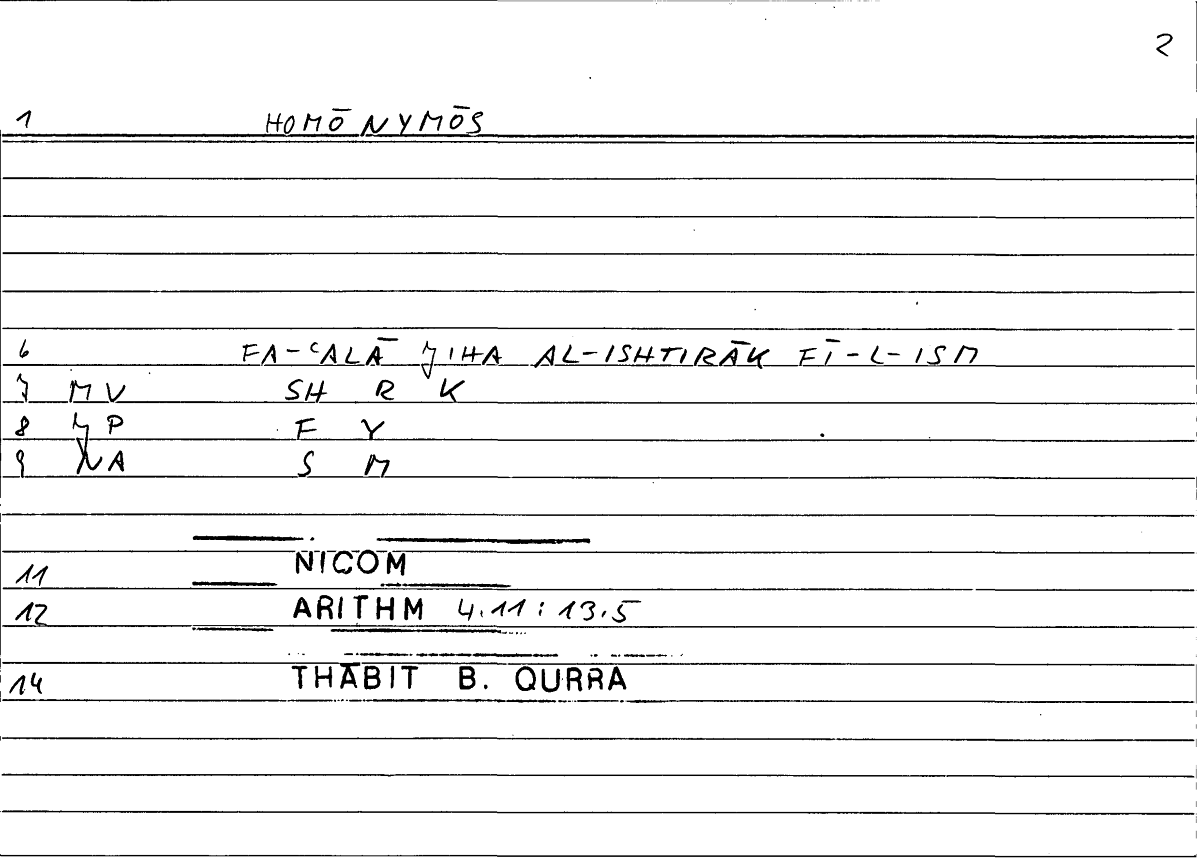 2
1 HOMŌNYMŌS
6 FA-ʿALĀ JIHA AL-ISHTIRĀK FĪ-L-ISM
7 MV SH R K
8 JP F Y
9 NA S M
11 NICOM
12 ARITHM 4.11:13.5
14 THĀBIT B. QURRA